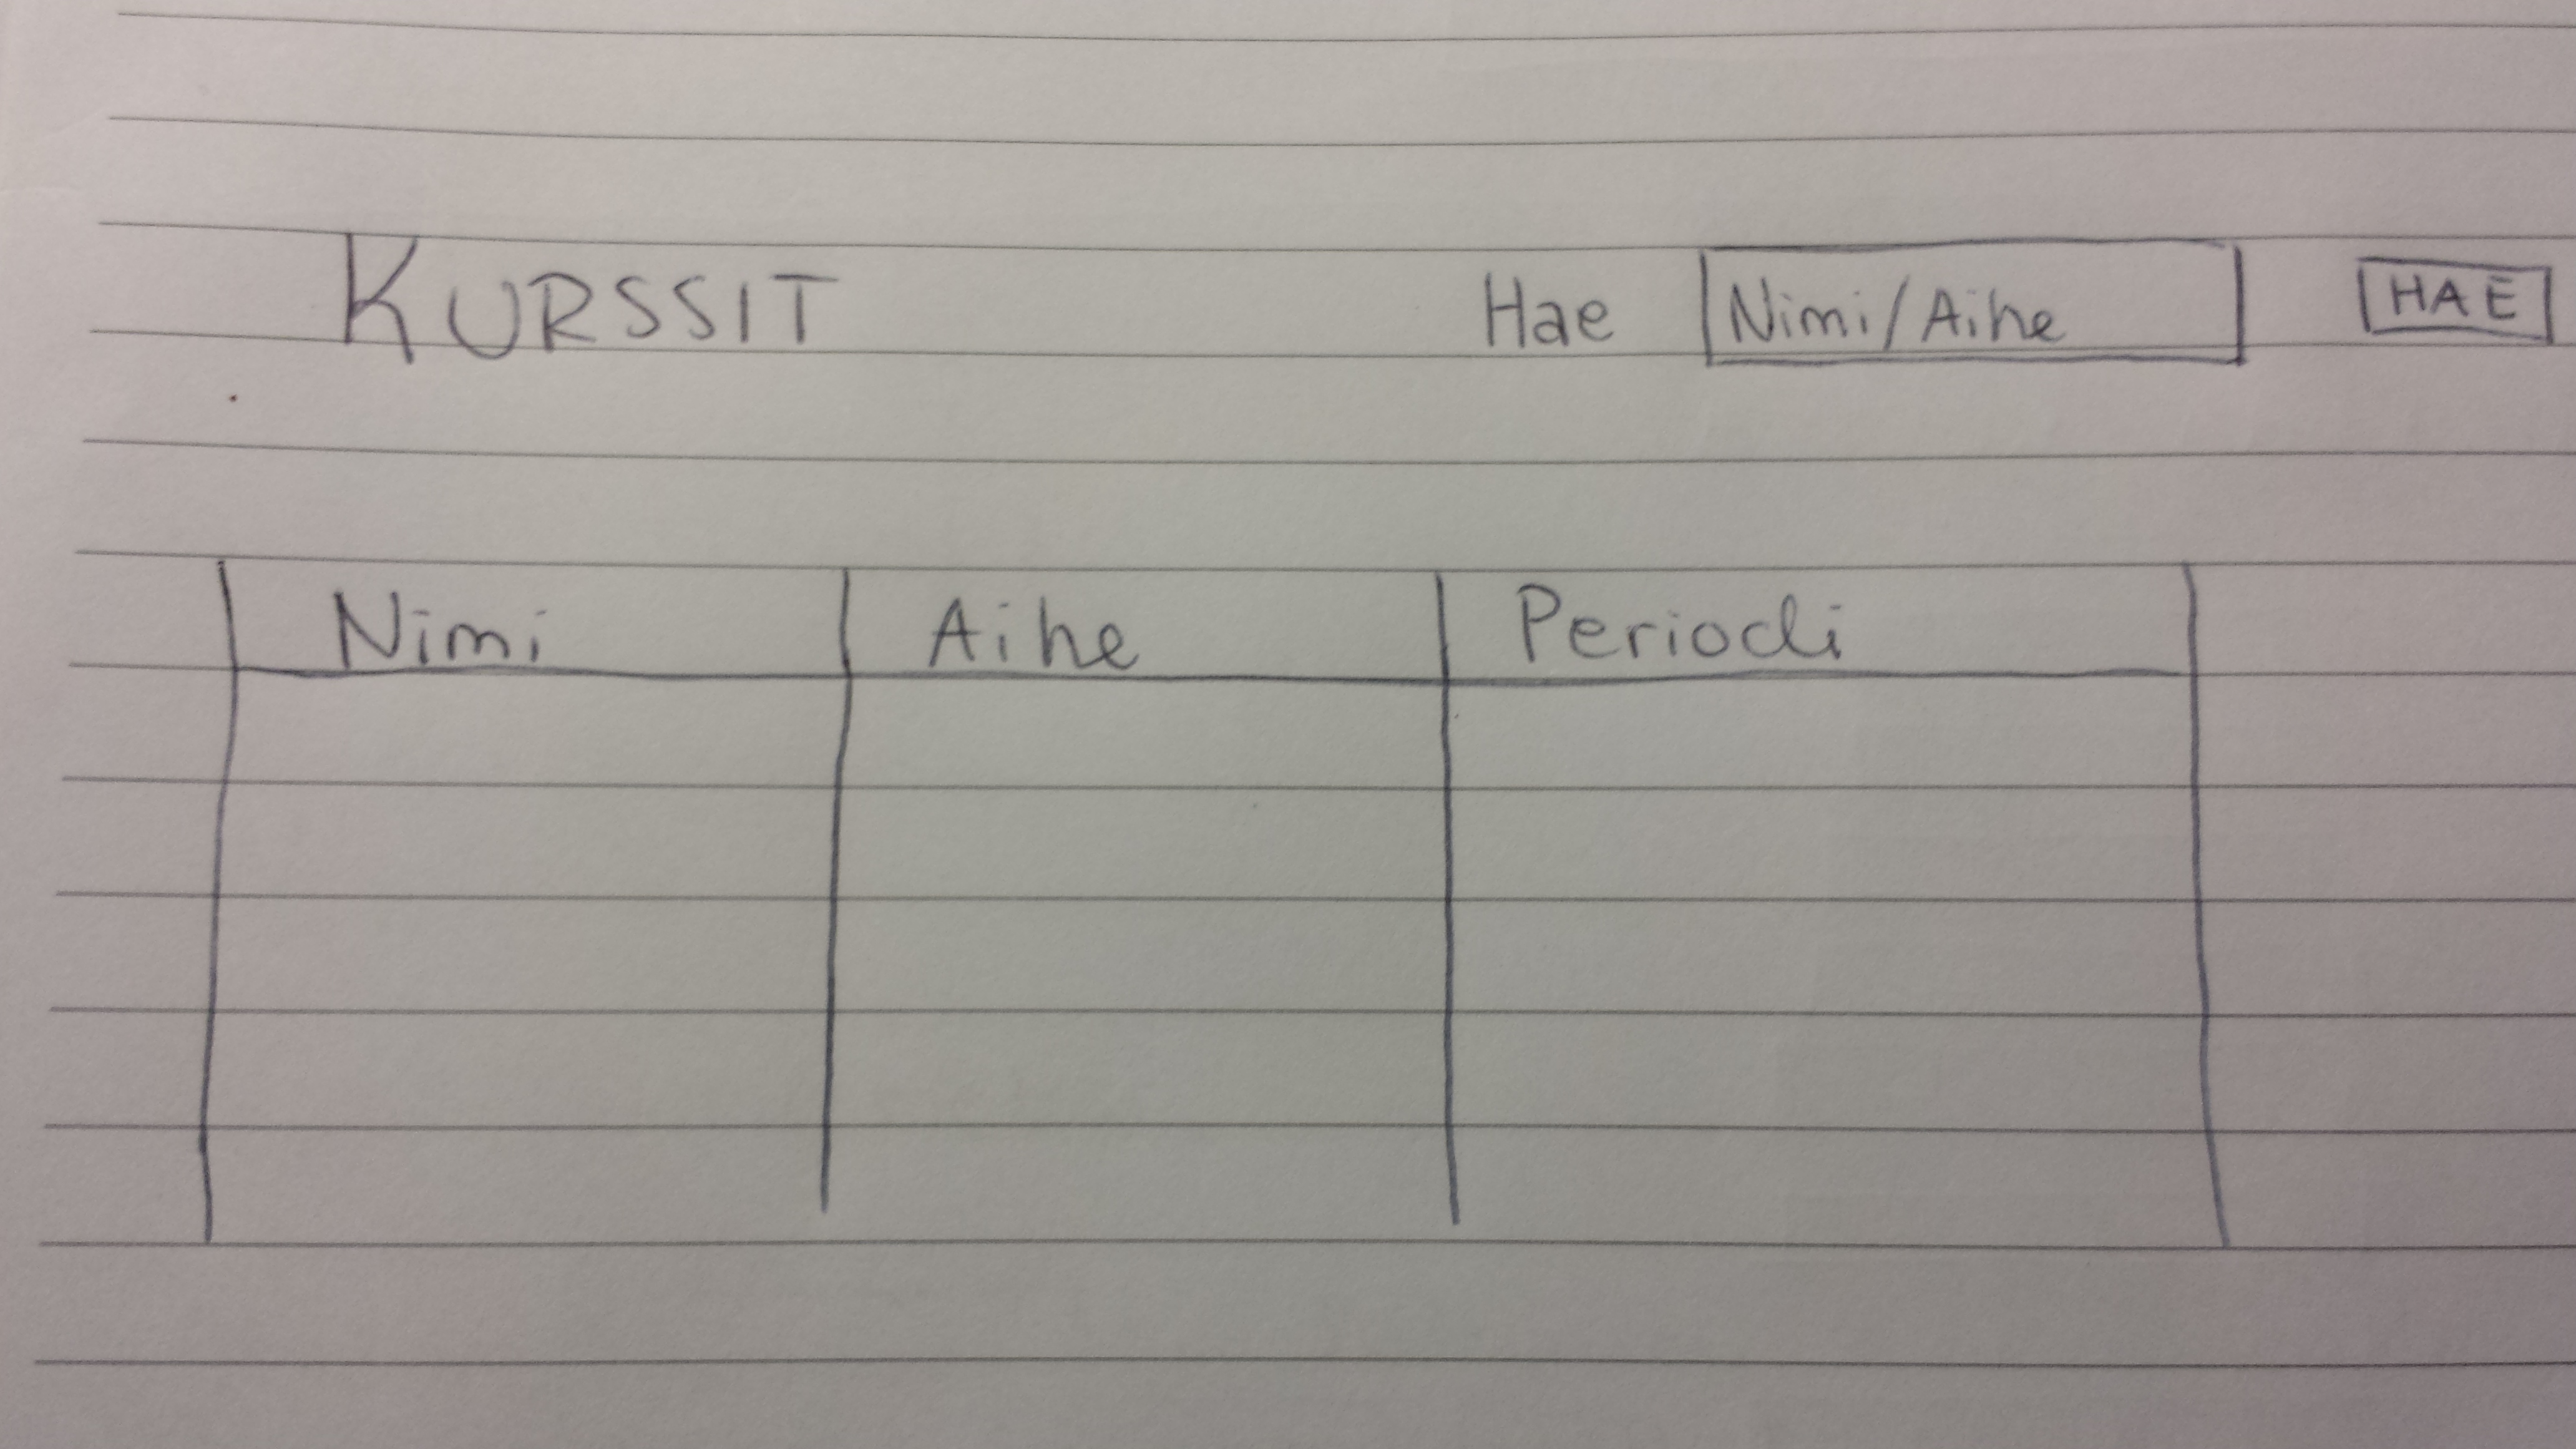 KURSSIT Hae Nimi/Aihe HAE
Nimi Aihe Periodi